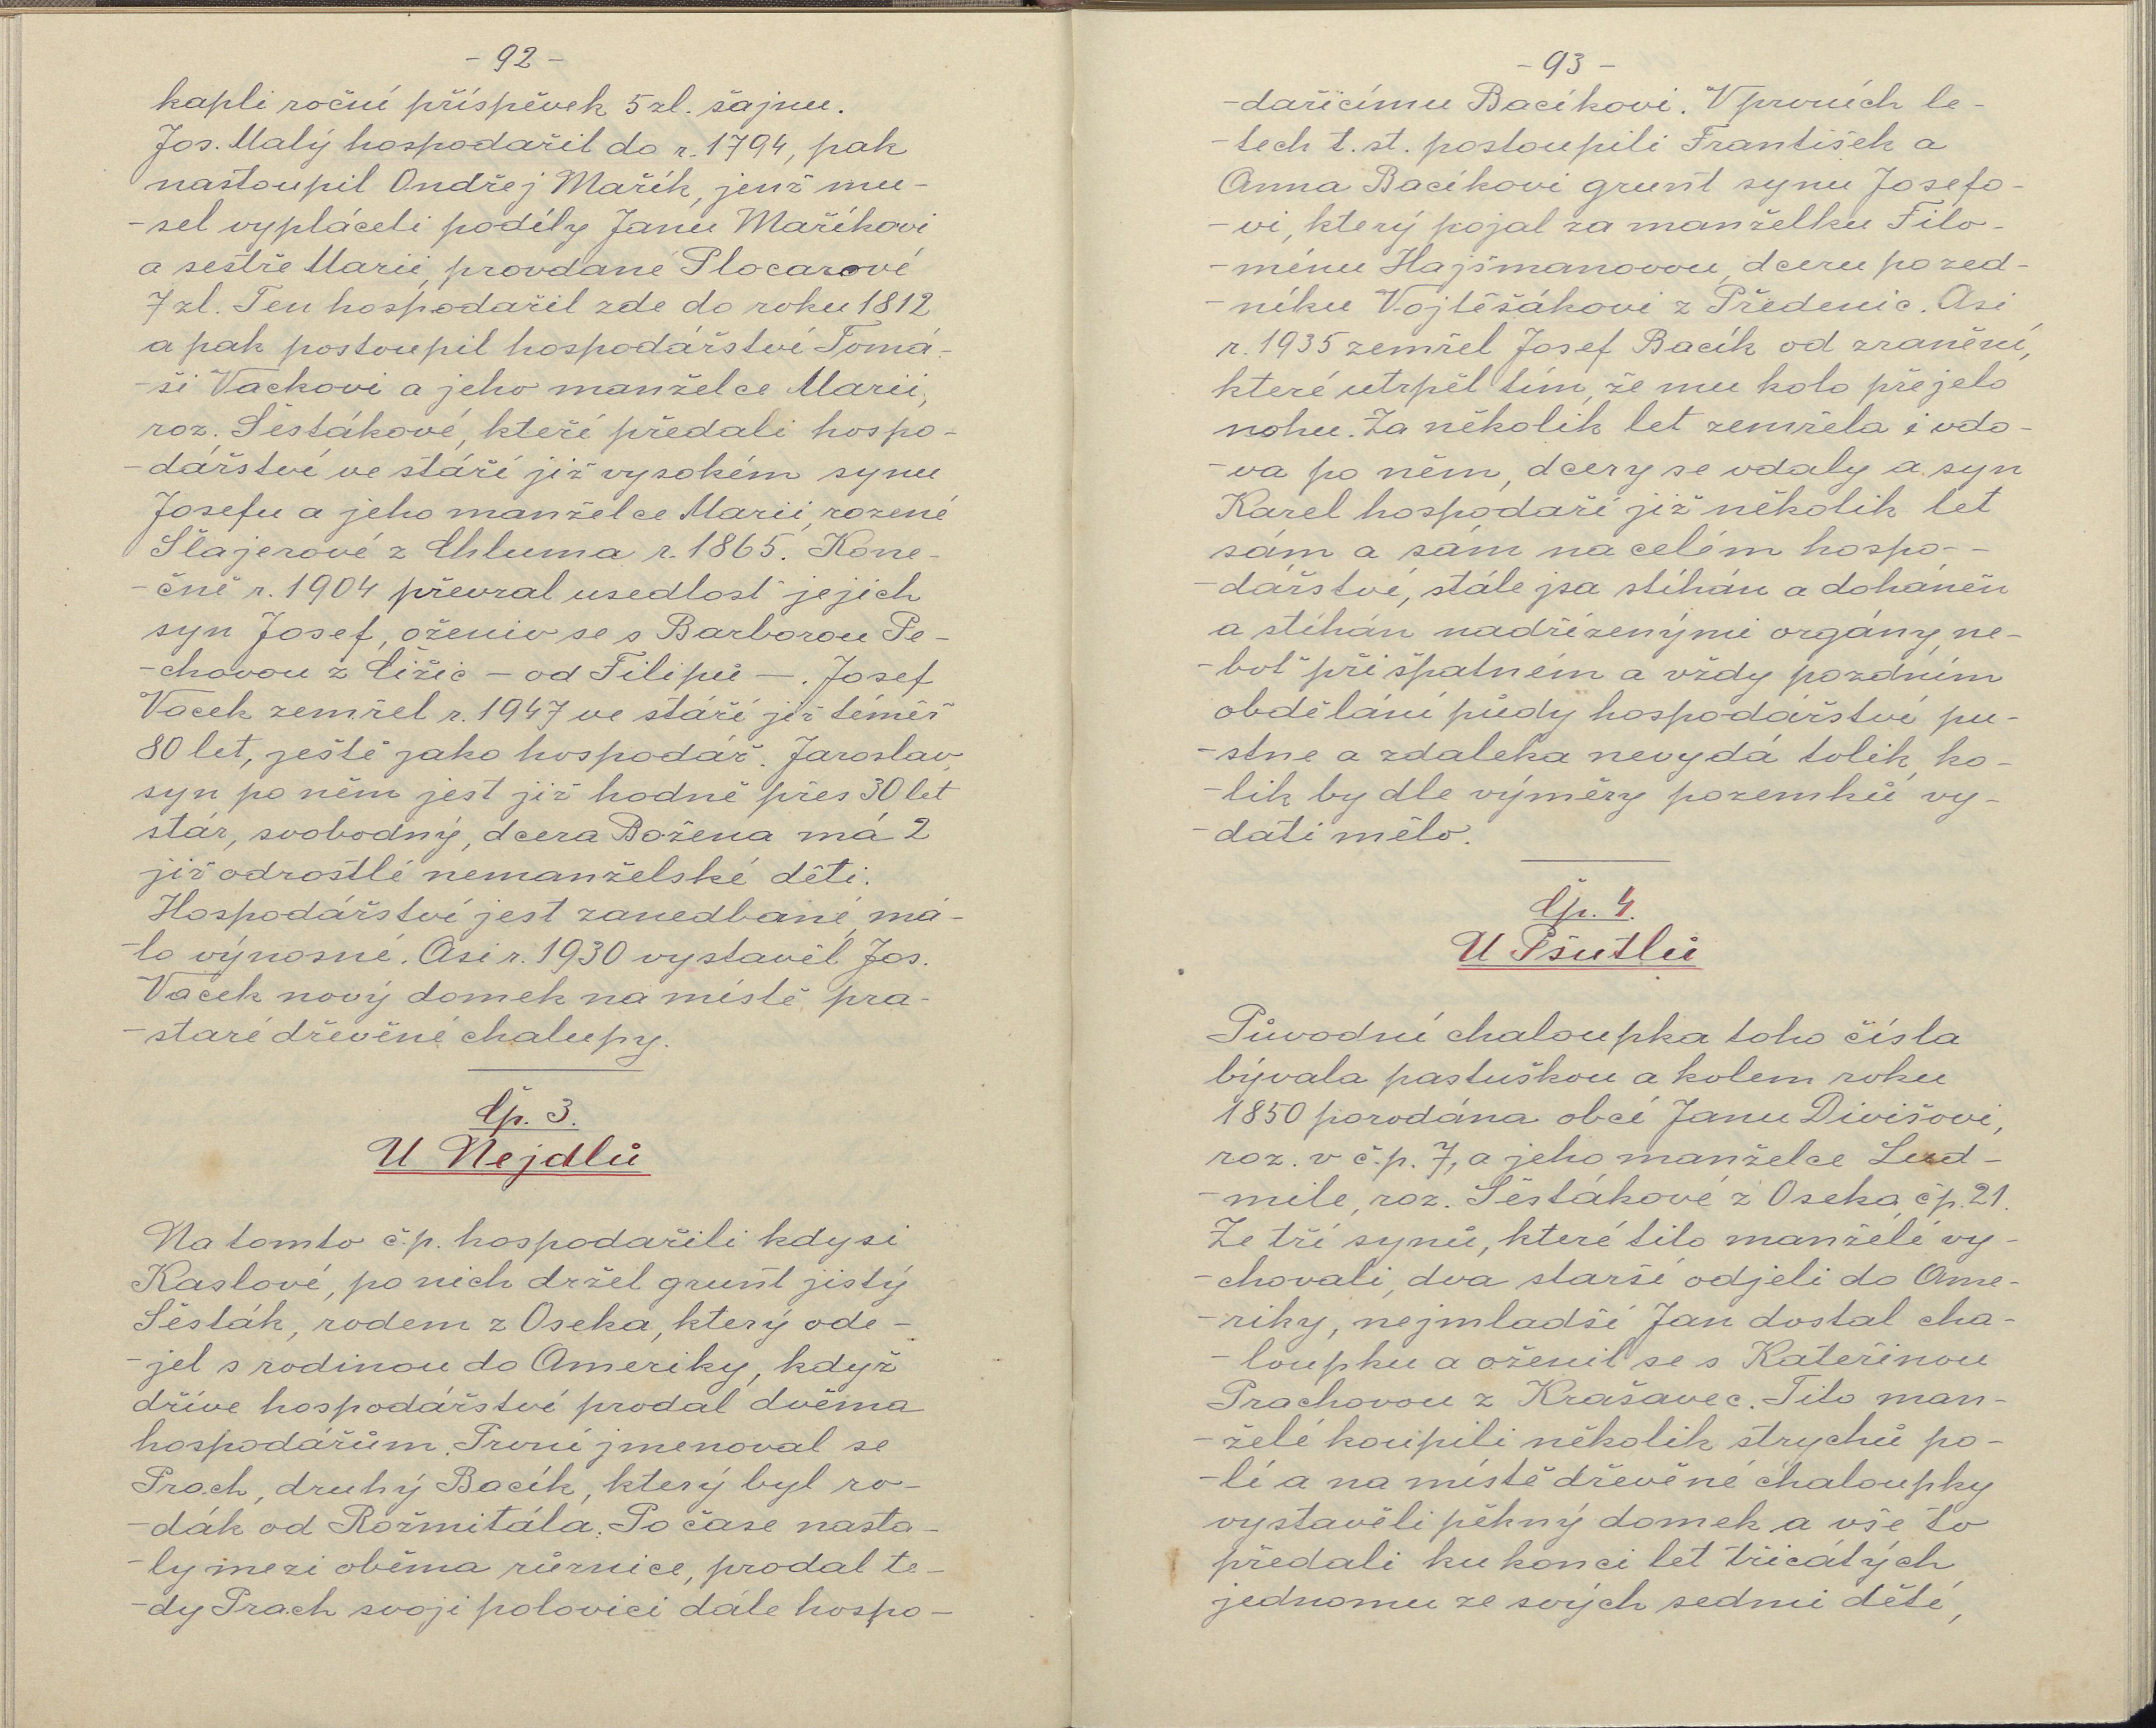 - 92 -
kapli roční příspěvek 5 zl. šajnu.
Jos. Malý hospodařil do r. 1794, pak
nastoupil Ondřej Mařík, jenž mu-
-sel vypláceti podíly Janu Maříkovi
a sestře Marii, provdané Plocarové
7 zl. Ten hospodařil zde do roku 1812
a pak postoupil hospodářství Tomá-
-ši Vackovi a jeho manželce Marii,
roz. Šestákové, kteří předali hospo-
-dářství ve stáří již vysokém synu
Josefu a jeho manželce Marii, rozené
Šlajerové z Chluma r. 1865. Kone-
-čně r. 1904 převzal usedlost jejich
syn Josef, oženiv se s Barborou Pe-
-chovou z Čižic - od Filipů -. Josef
Vacek zemřel r. 1947 ve stáří již téměř
80 let, ještě jako hospodář. Jaroslav,
syn po něm jest již hodně přes 30 let
stár, svobodný, dcera Božena má 2
již odrostlé nemanželské děti.
Hospodářství jest zanedbané, má-
-lo výnosné. Asi r. 1930 vystavěl Jos.
Vacek nový domek na místě pra-
-staré dřevěné chalupy.
Čp. 3.
U Nejdlů
Na tomto č.p. hospodařili kdysi
Kaslové, po nich držel grunt jistý
Šesták, rodem z Oseka, který ode-
-jel s rodinou do Ameriky, když
dříve hospodářství prodal dvěma
hospodářům. První jmenoval se
Prach, druhý Bacík, který byl ro-
-dák od Rožmitála. Po čase nasta-
-ly mezi oběma různice, prodal te-
-dy Prach svoji polovici dále hospo-
- 93 -
-dařícímu Bacíkovi. V prvních le-
-tech t. st. postoupili František a
Anna Bacíkovi grunt synu Josefo-
-vi, který pojal za manželku Filo-
-ménu Hajšmanovou, dceru po zed-
-níku Vojtěšákovi z Předenic. Asi
r. 1935 zemřel Josef Bacík od zranění,
které utrpěl tím, že mu kolo přejelo
nohu. Za několik let zemřela i vdo-
-va po něm, dcery se vdaly a syn
Karel hospodaří již několik let
sám a sám na celém hospo-
-dářství, stále jsa stíhán a doháněn
a stíhán nadřízenými orgány, ne-
-boť při špatném a vždy pozdním
obdělání půdy hospodářství pu-
-stne a zdaleka nevydá tolik, ko-
-lik by dle výměry pozemků vy-
-dati mělo.
Čp. 4.
U Pšutlů
Původní chaloupka toho čísla
bývala pastuškou a kolem roku
1850 porodána obcí Janu Divišovi,
roz. v č.p. 7, a jeho manželce Lud-
-mile, roz. Šestákové z Oseka čp. 21.
Ze tří synů, které tito manželé vy-
-chovali, dva starší odjeli do Ame-
-riky, nejmladší Jan dostal cha-
-loupku a oženil se s Kateřinou
Prachovou z Krašavec. Tito man-
-želé koupili několik strychů po-
-lí a na místě dřevěné chaloupky
vystavěli pěkný domek a vše to
předali ku konci let třicátých
jednomu ze svých sedmi dětí,